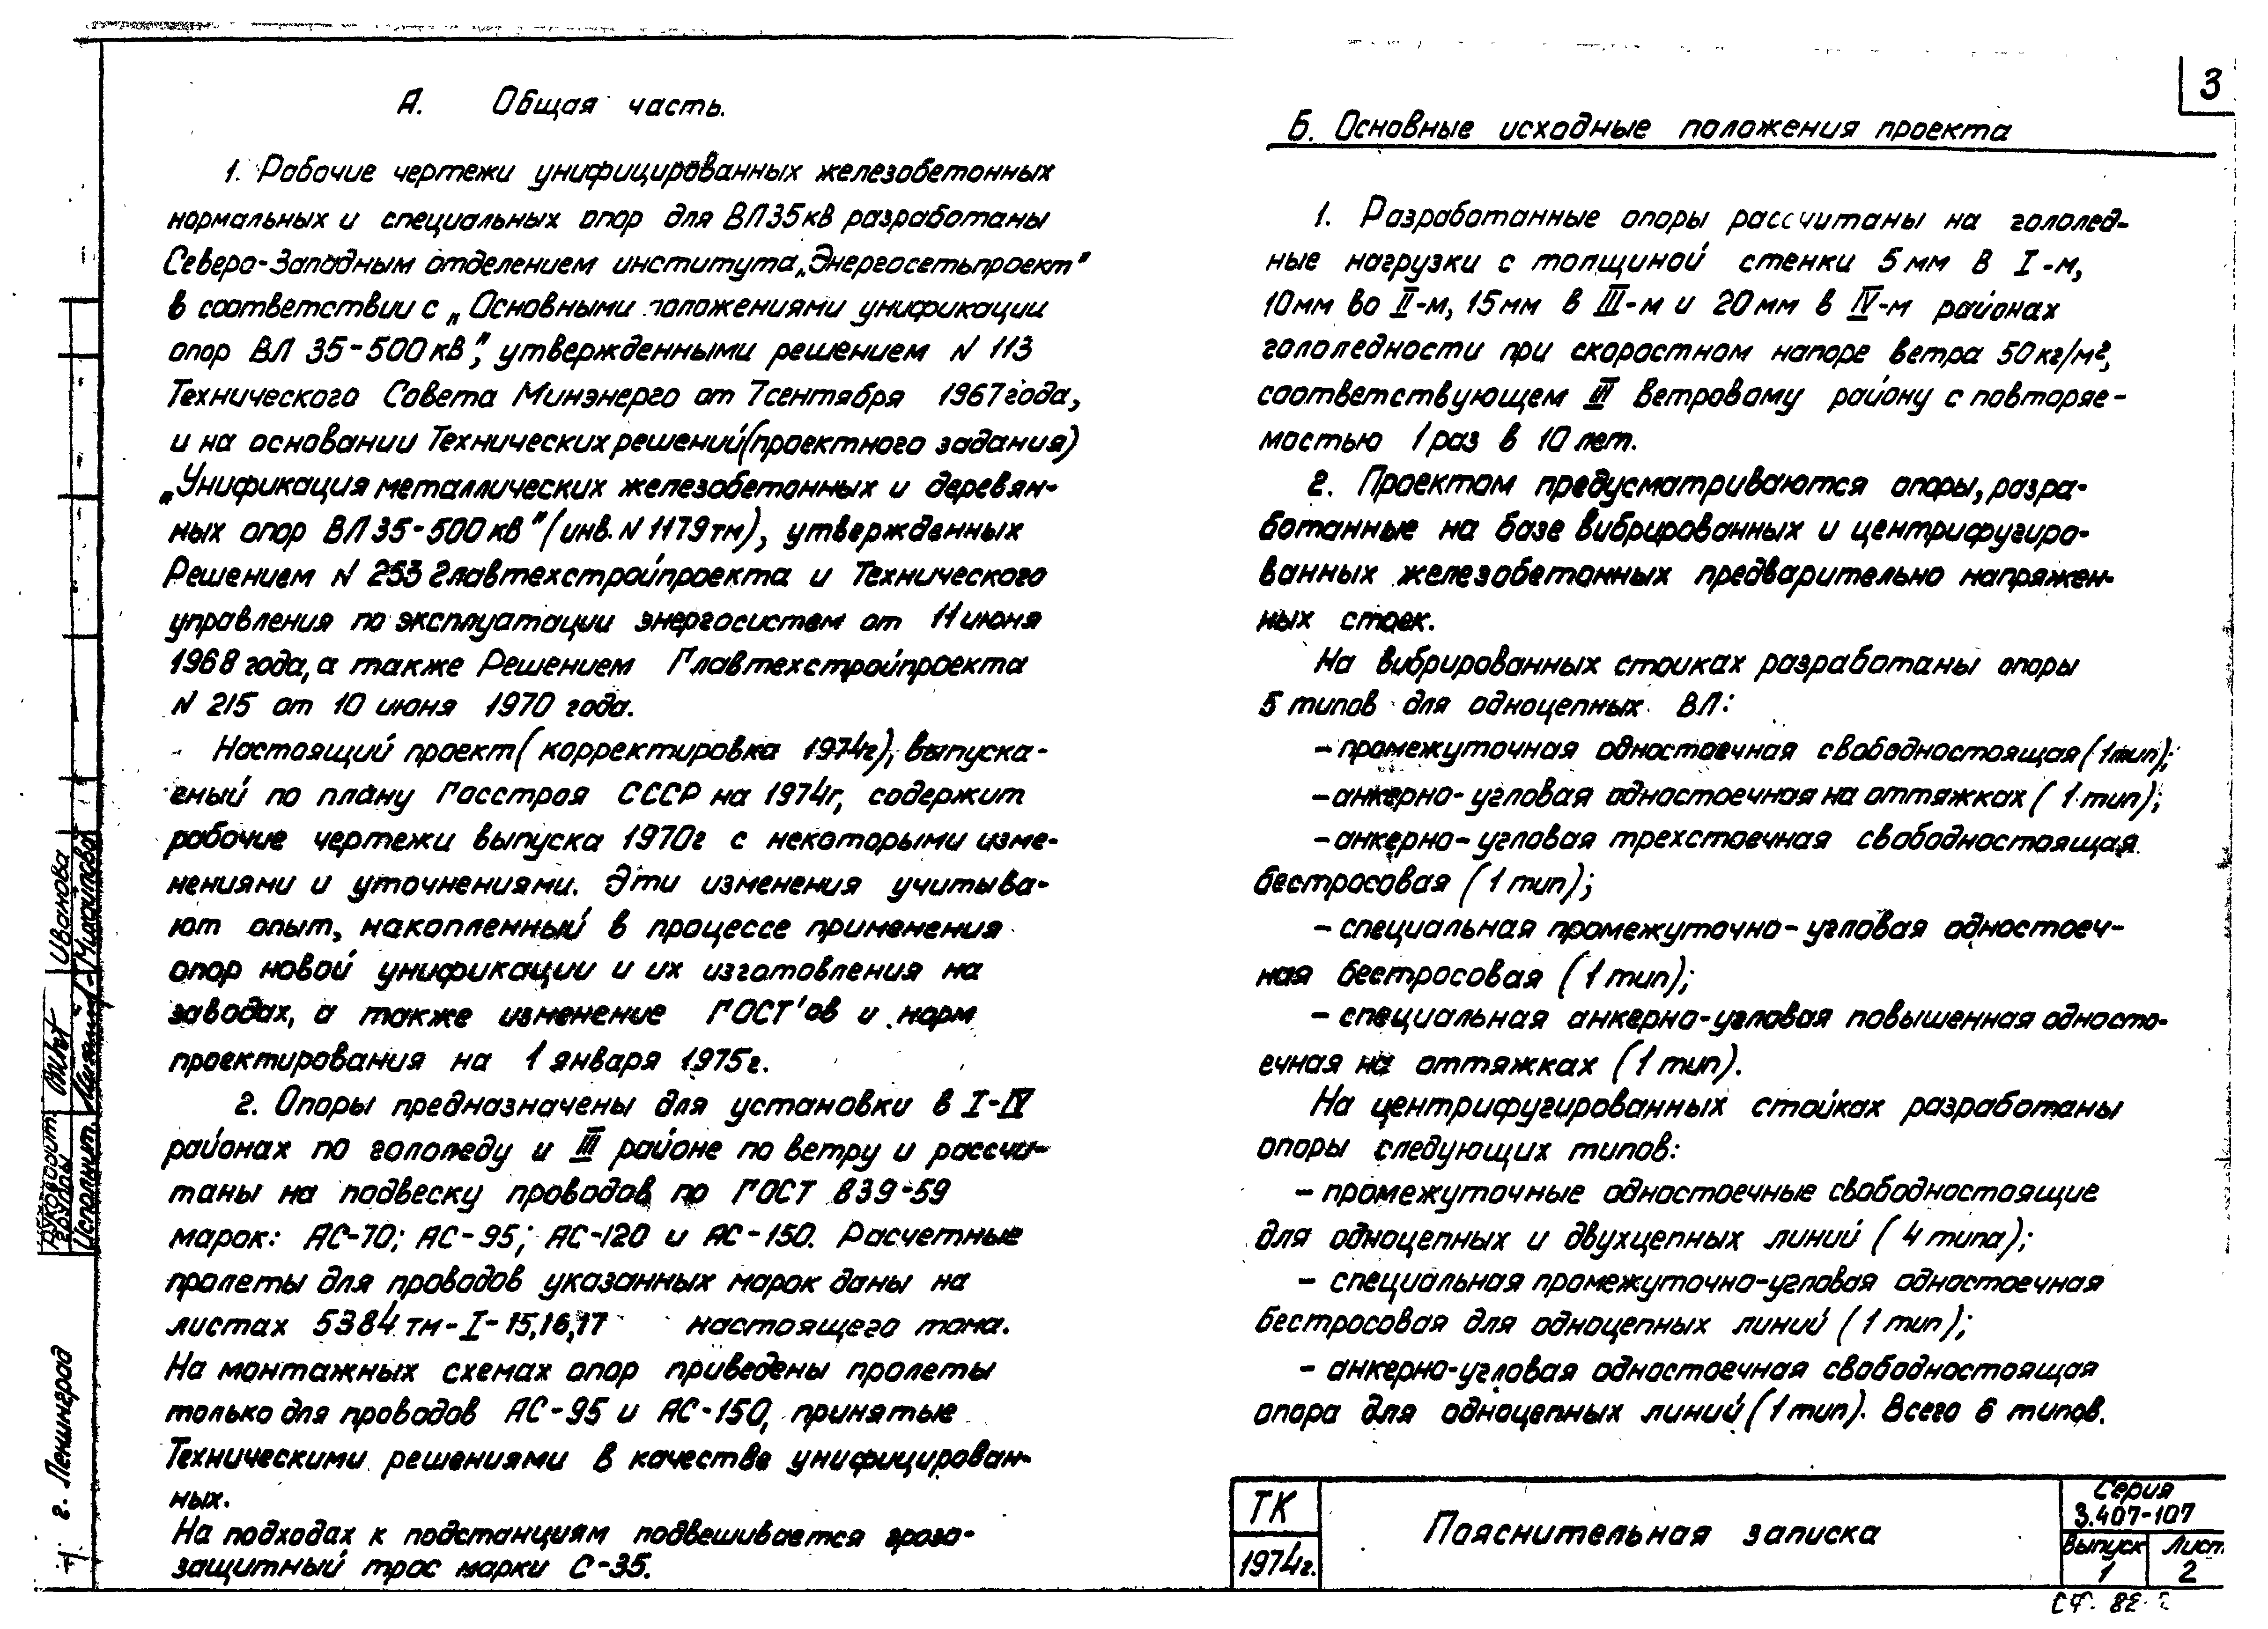 А. Общая часть.
1. Рабочие чертежи унифицированных железобетонных
нормальных и специальных опор для ВЛ 35 кВ разработаны
Северо-Западным отделением института „Энергосетьпроект"
в соответствии с „Основными положениями унификации
опор ВЛ 35-500 кВ", утвержденными решением N 113
Технического Совета Минэнерго от 7 сентября 1967 года,
и на основании Технических решений (проектного задания)
„Унификация металлических железобетонных и деревян-
ных опор ВЛ 35-500 кВ" (инв. N 1179тм), утвержденных
Решением N 253 Главтехстройпроекта и Технического
управления по эксплуатации энергосистем от 11 июня
1968 года, а также Решением Главтехстройпроекта
N 215 от 10 июня 1970 года.
Настоящий проект (корректировка 1974г), выпуска-
емый по плану Госстроя СССР на 1974г, содержит
рабочие чертежи выпуска 1970г с некоторыми изме-
нениями и уточнениями. Эти изменения учитыва-
ют опыт, накопленный в процессе применения
опор новой унификации и их изготовления на
заводах, а также изменение ГОСТ'ов и норм
проектирования на 1 января 1975г.
2. Опоры предназначены для установки в I-IV
районах по гололеду и III районе по ветру и рассчи-
таны на подвеску проводов по ГОСТ 839-59
марок: АС-70; АС-95; АС-120 и АС-150. Расчетные
пролеты для проводов указанных марок даны на
листах 5384 тм-I-15,16,17 настоящего тома.
На монтажных схемах опор приведены пролеты
только для проводов АС-95 и АС-150, принятые
Техническими решениями в качестве унифицирован-
ных.
На подходах к подстанциям подвешивается грозо-
защитный трос марки С-35.
3
Б. Основные исходные положения проекта
1. Разработанные опоры рассчитаны на гололед-
ные нагрузки с толщиной стенки 5 мм в I-м,
10мм во II-м, 15мм в III-м и 20 мм в IV-м районах
гололедности при скоростном напоре ветра 50 кг/м²,
соответствующем III ветровому району с повторяе-
мостью 1 раз в 10 лет.
2. Проектом предусматриваются опоры, разра-
ботанные на базе вибрированных и центрифугиро-
ванных железобетонных предварительно напряжен-
ных стоек.
На вибрированных стойках разработаны опоры
5 типов для одноцепных ВЛ:
- промежуточная одностоечная свободностоящая (1тип);
- анкерно-угловая одностоечная на оттяжках (1 тип);
- анкерно-угловая трехстоечная свободностоящая
бестросовая (1 тип);
- специальная промежуточно-угловая одностоеч-
ная бестросовая (1 тип);
- специальная анкерно-угловая повышенная односто-
ечная на оттяжках (1 тип).
На центрифугированных стойках разработаны
опоры следующих типов:
- промежуточные одностоечные свободностоящие
для одноцепных и двухцепных линий (4 типа);
- специальная промежуточно-угловая одностоечная
бестросовая для одноцепных линий (1 тип);
- анкерно-угловая одностоечная свободностоящая
опора для одноцепных линий (1 тип). Всего 6 типов.
ТК
1974г.
Пояснительная записка
Серия
3.407-107
Выпуск
1
Лист
2
Руководит.
группы
Иванова
Исполнит.
г. Ленинград